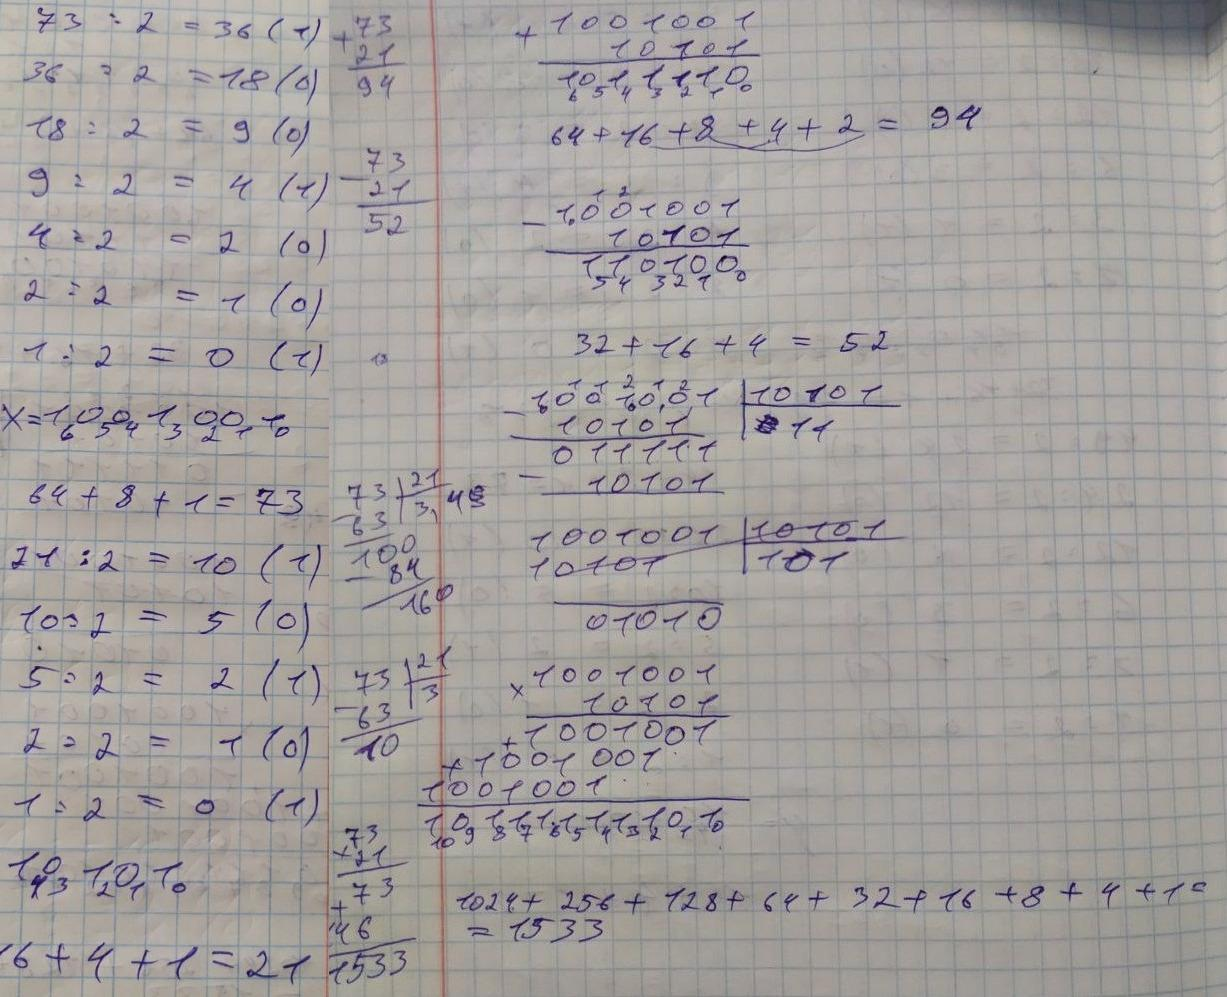 73 : 2 = 36 (1)
36 : 2 = 18 (0)
18 : 2 = 9 (0)
9 : 2 = 4 (1)
4 : 2 = 2 (0)
2 : 2 = 1 (0)
1 : 2 = 0 (1)
X = 1001001
6 5 4 3 2 1 0
64 + 8 + 1 = 73
21 : 2 = 10 (1)
10 : 2 = 5 (0)
5 : 2 = 2 (1)
2 : 2 = 1 (0)
1 : 2 = 0 (1)
10101
4 3 2 1 0
16 + 4 + 1 = 21
+ 73
21
94
- 73
21
52
73 | 21
- 63 | 3,
100
- 84
160
73 | 21
- 63 | 3
10
73
× 21
73
+
146
1533
+ 1001001
10101
1011110
6 5 4 3 2 1 0
64 + 16 + 8 + 4 + 2 = 94
1 2
- 1001001
10101
110100
5 4 3 2 1 0
32 + 16 + 4 = 52
1 1 2 1 2
- 1001001 | 10101
10101 | 11
011111
- 10101
1001001 | 10101
10101 | 101
01010
× 1001001
10101
+ 1001001
+ 1001001
1001001
10111111101
10 9 8 7 6 5 4 3 2 1 0
1024 + 256 + 128 + 64 + 32 + 16 + 8 + 4 + 1 =
= 1533